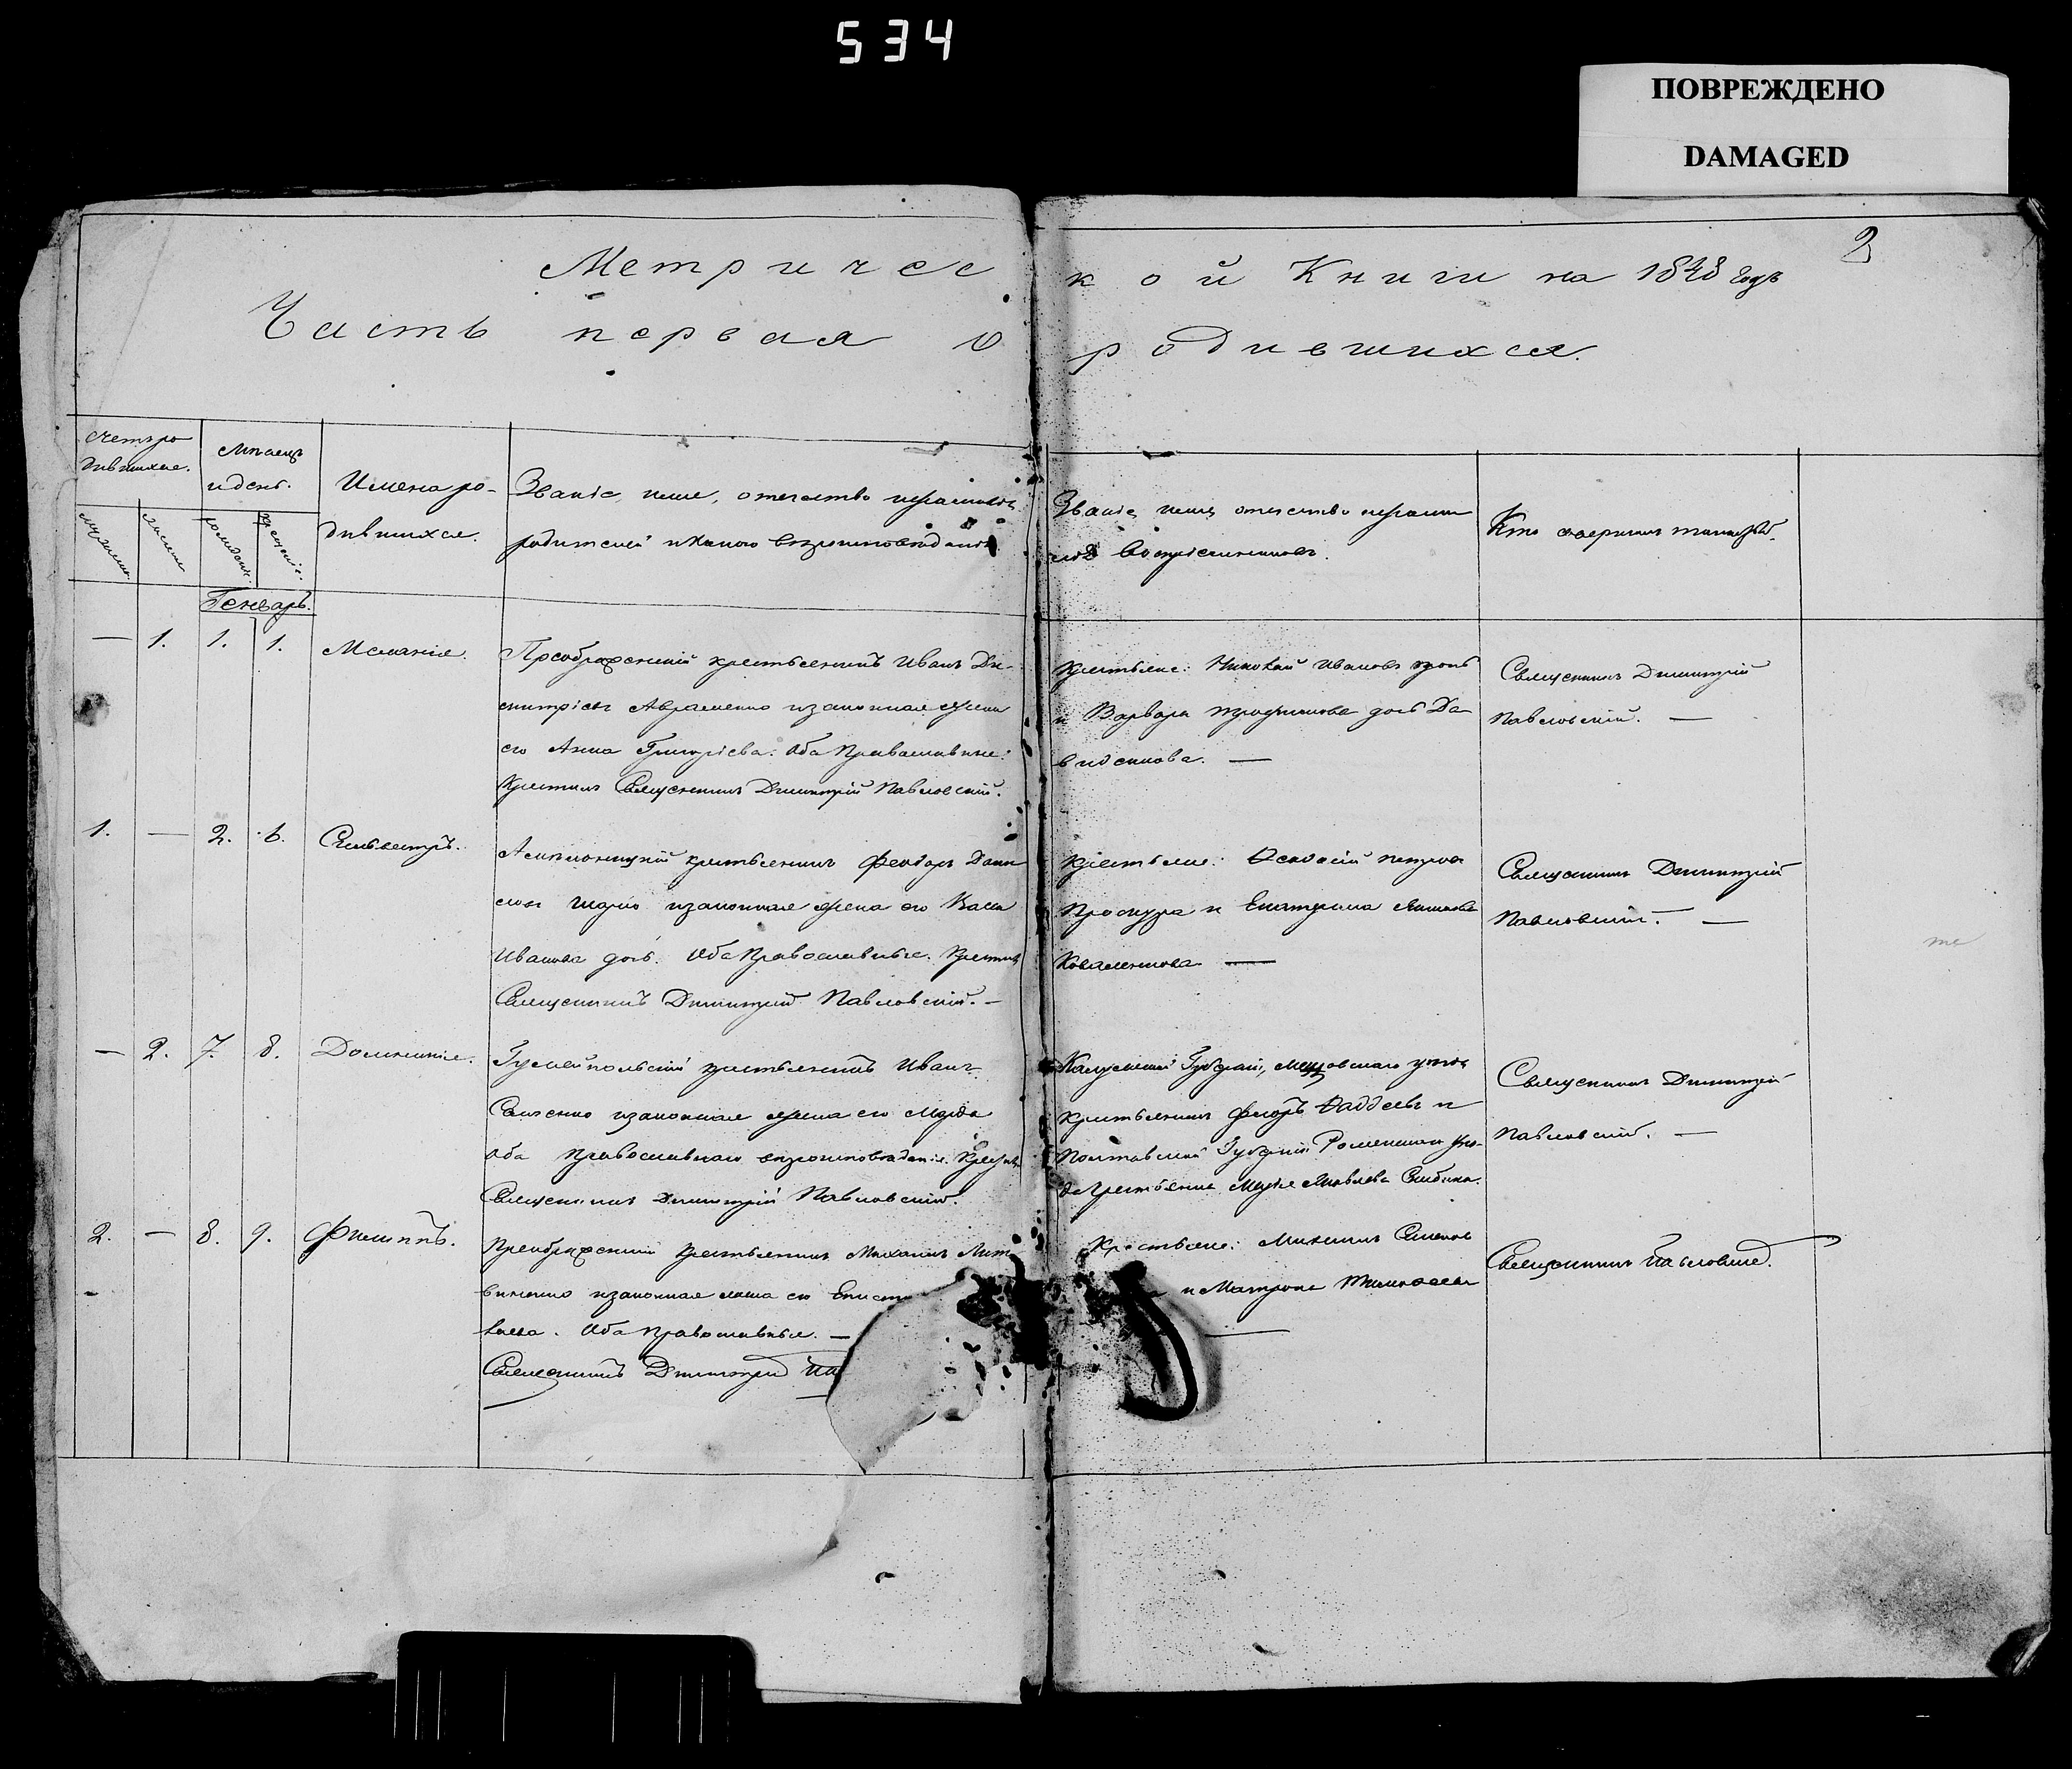 534
ПОВРЕЖДЕНО
DAMAGED
2
Метричес кой Книги на 1848 годъ
Часть первая о родившихся.
Счетъ ро
дившихся.
Мѣсяцъ
и день.
Имена ро-
дившихся.
Званіе, имя, отечество
родителей и какого вѣроисповѣданія
Званіе, имя, отечество
воспріемниковъ.
Кто совершилъ таинство
рожденія
крещенія
Генварь.
— 1. 1. 1. Меланія.
Преображенский крестьянинъ Иванъ Ди-
митріевъ Авраменко и законная жена
его Анна Григоріева. Оба Православные.
Крестилъ Священникъ Димитрій Павловскій.
Крестьяне: Николай Ивановъ
и Варвара дочь Да-
виденкова. —
Священникъ Димитрій
Павловскій. —
1. — 2. 6. Сильвестръ.
крестьянинъ Феодоръ Дани
ловъ и законная жена его
Иванова дочь. Оба Православные. Крестилъ
Священникъ Димитрій Павловскій. —
Крестьяне: Петровъ
Проскура и Екатерина
Коваленкова —
Священникъ Димитрій
Павловскій. —
— 2. 7. 8. Домникія.
Гуляйпольскій крестьянинъ Иванъ
Савченко и законная жена его Марфа
Оба Православнаго вѣроисповѣданія. Крестилъ
Священникъ Димитрій Павловскій.
Калужской Губерніи, Мещовскаго уѣзда
крестьянинъ Фаддеевъ и
Полтавской Губерніи Роменскаго уѣз-
да крестьянка Яковлева
Священникъ Димитрій
Павловскій. —
2. — 8. 9. Филиппъ.
Преображенский крестьянинъ Михаилъ Лит
виненко и законная жена его
Оба Православные. —
Священникъ Димитрій Па
Крестьяне: Семенов
и Матрона
Священникъ Павловскій.